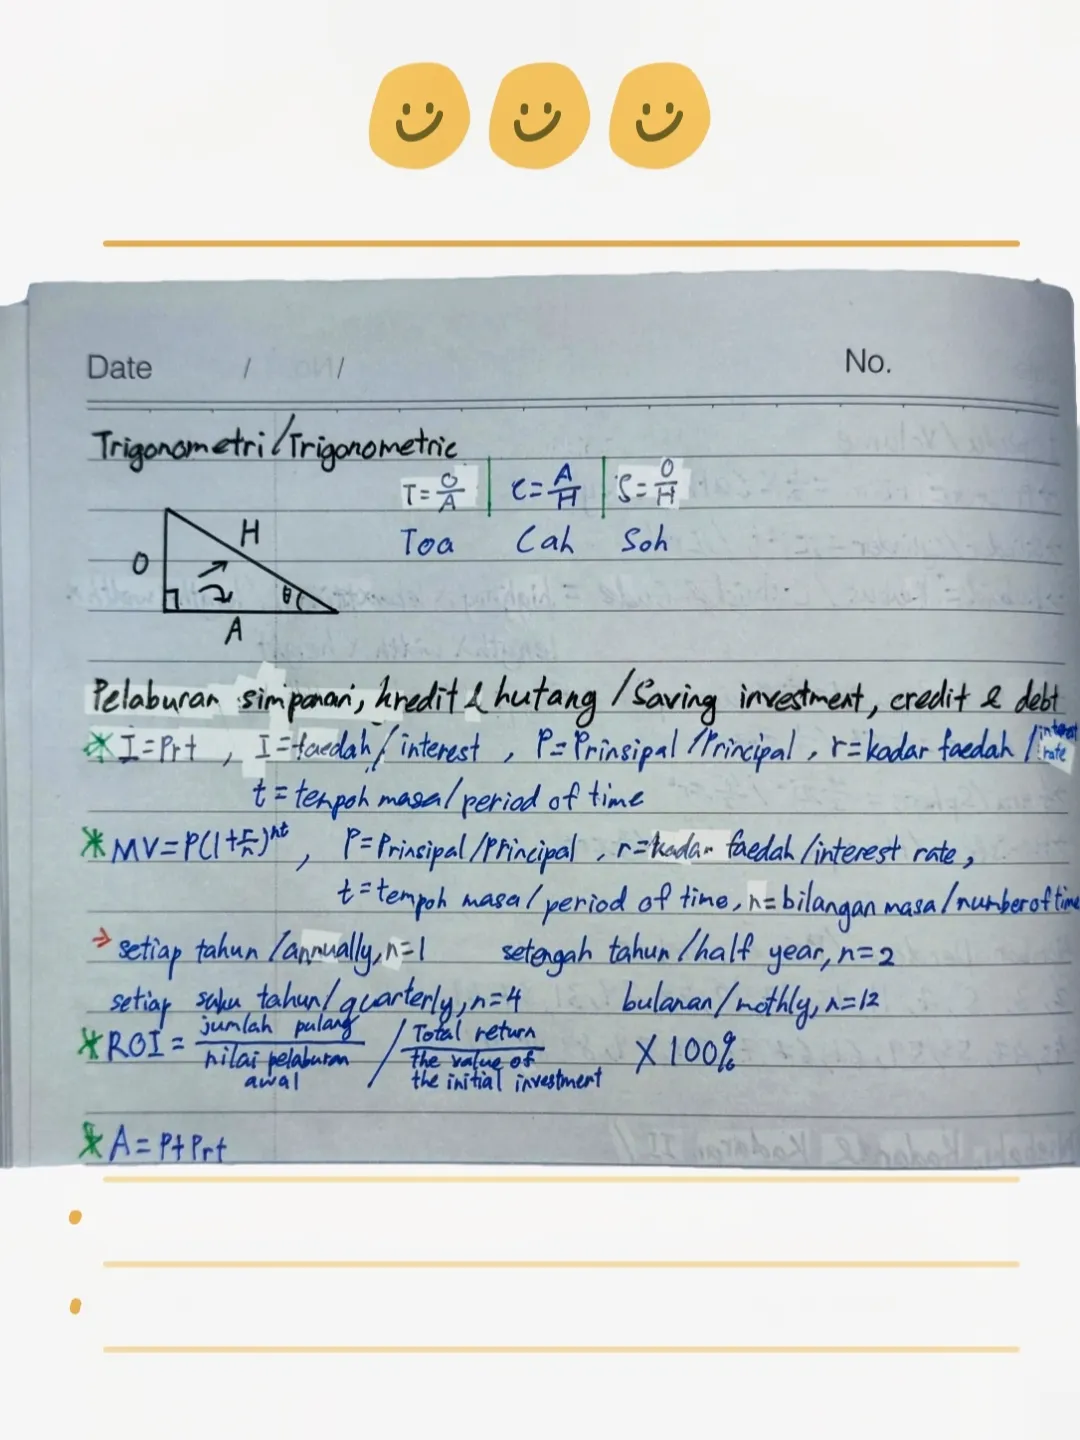 Date / / No.
Trigonometri/Trigonometric
T=O/A | C=A/H | S=O/H
Toa Cah Soh
O H
θ
A
Pelaburan simpanan, kredit & hutang / Saving investment, credit & debt
* I=Prt , I=faedah/interest , P=Prinsipal/Principal , r=kadar faedah/interest rate
t=tempoh masa/period of time
* MV=P(1+r/n)^nt , P=Prinsipal/Principal , r=kadar faedah/interest rate,
t=tempoh masa/period of time, n=bilangan masa/number of time
→ setiap tahun/annually, n=1 setengah tahun/half year, n=2
setiap suku tahun/quarterly, n=4 bulanan/mothly, n=12
* ROI = jumlah pulang / nilai pelaburan awal / Total return / the value of the initial investment X 100%
* A=P+Prt